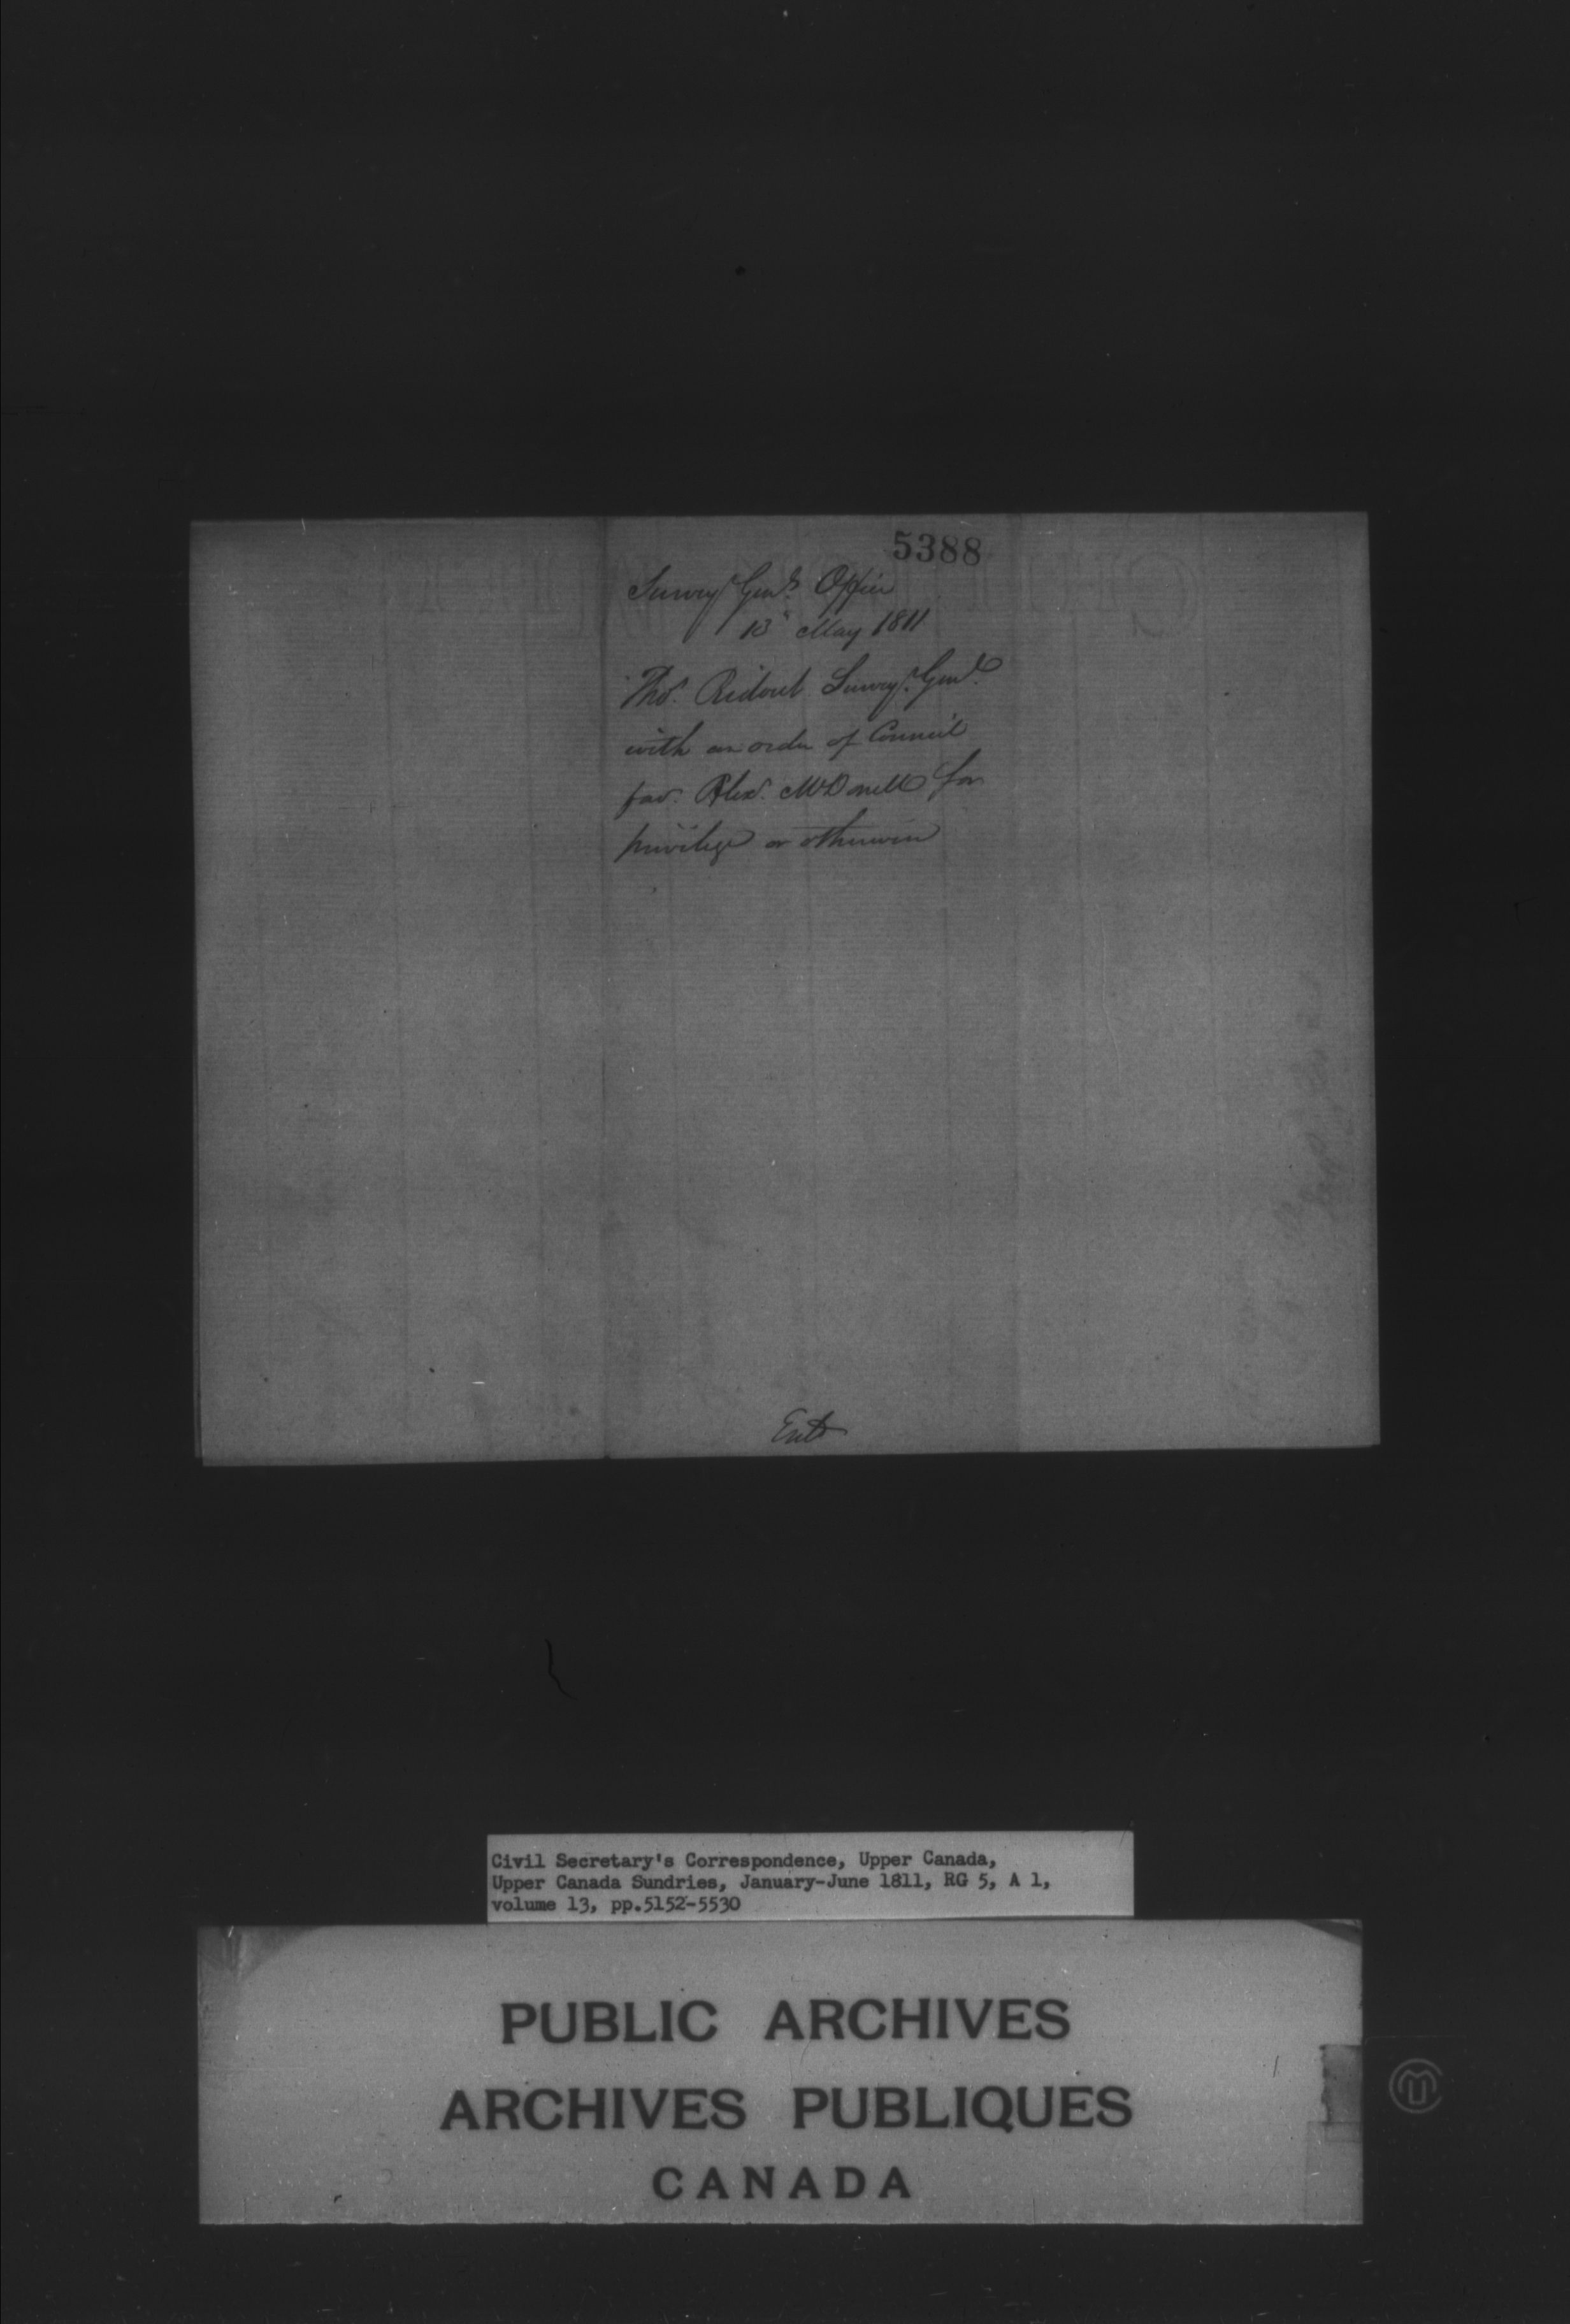 5388
Survey. Genl. Office
13th May 1811
Thos. Ridout Survey. Genl.
with an order of Council
fav. Alexr. McDonell for
privilege or otherwise
Entd
Civil Secretary's Correspondence, Upper Canada,
Upper Canada Sundries, January-June 1811, RG 5, A 1,
volume 13, pp.5152-5530
PUBLIC ARCHIVES
ARCHIVES PUBLIQUES
CANADA